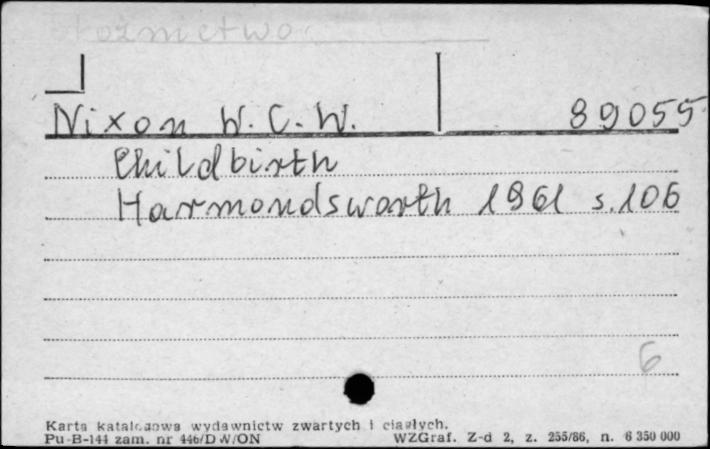 Położnictwo
Nixon W. C. W. 89055
Childbirth
Harmondsworth 1961 s. 106
6
Karta katalogowa wydawnictw zwartych i ciągłych.
Pu-B-144 zam. nr 446/DW/ON WZGraf. Z-d 2, z. 255/86, n. 6 350 000